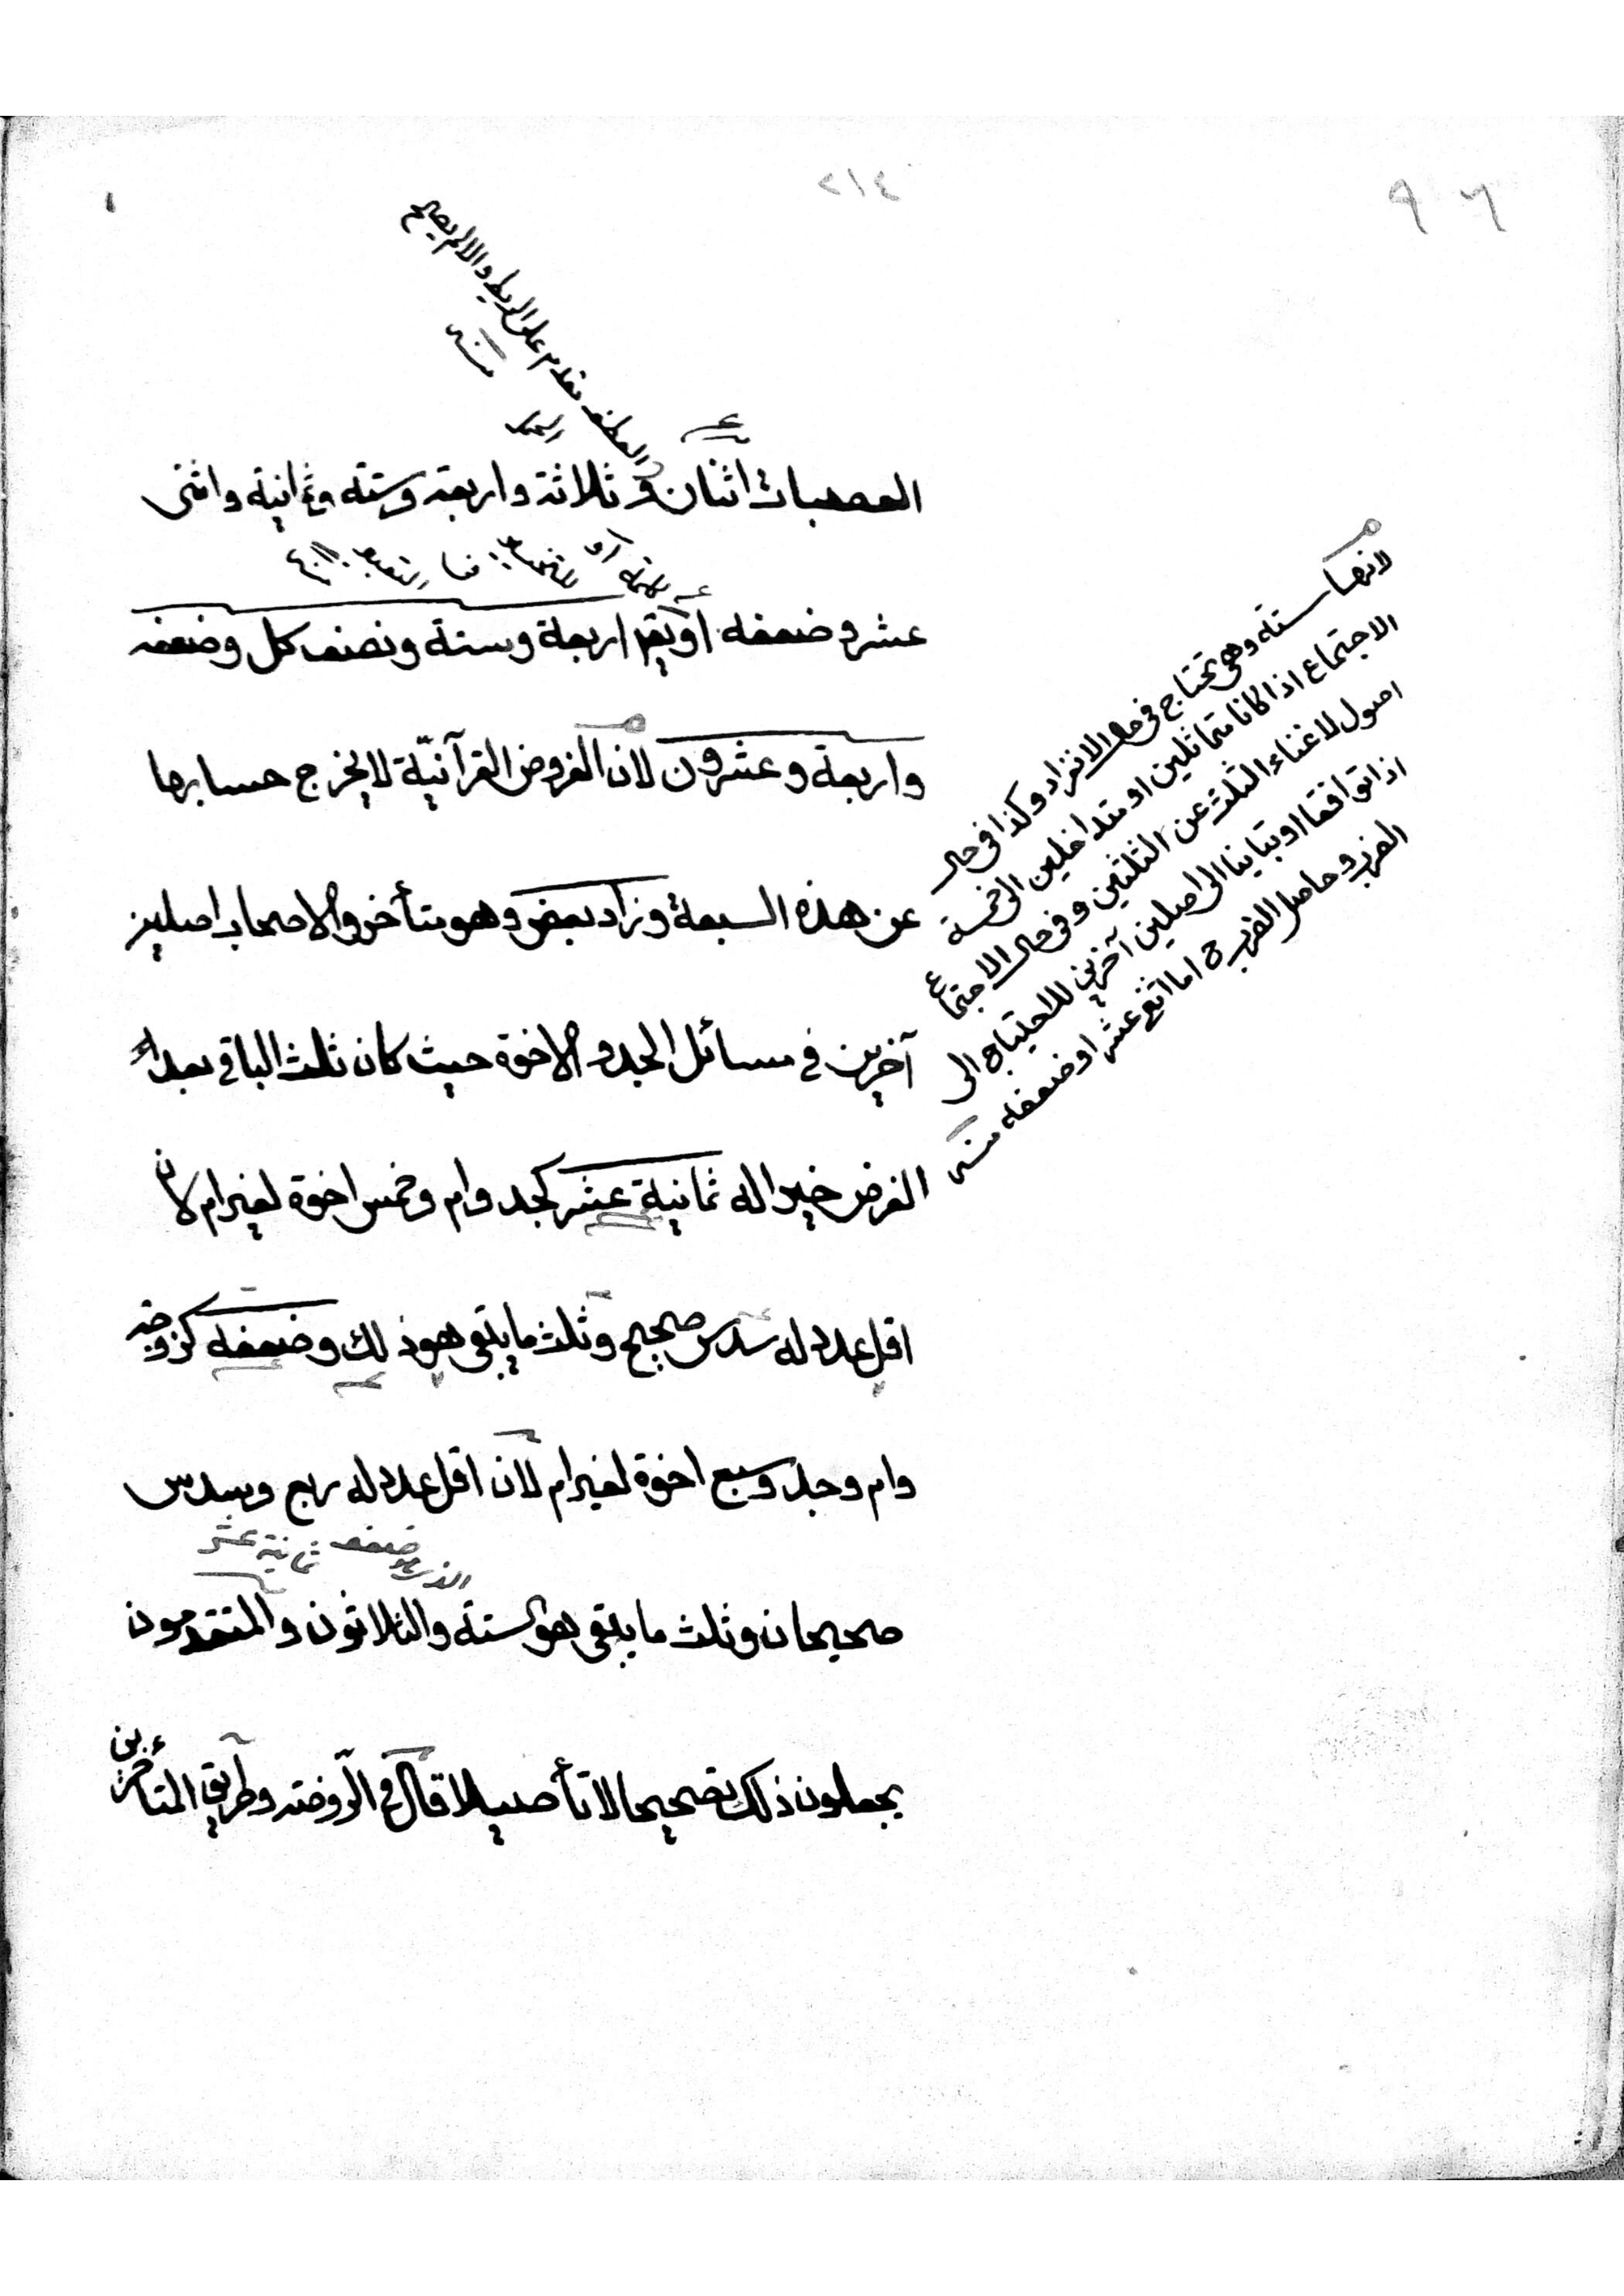 ٩٦
٢١٤
العطف مقدم على الربط والا لم يصح
منه
العصبات اثنان وثلاثة واربعة وستة وثمانية واثنى
عشر وضعفه او يقر اربعة وستة ونصف كل وضعفه
واربعة وعشرون لان الفروض القرآنيّة لا يخرج حسابها
عن هذه السبعة وزاد بعض وهو متأخروا الاصحاب اصلين
آخرين في مسائل الجد والاخوة حيث كان ثلث الباقي بعد
الفرض خيرا له ثمانية عشر كجد وام وخمس اخوة لغير ام لان
اقل عدد له سدس صحيح وثلث ما يبقى هو ذلك وضعفه كزوجة
وام وجد وسبع اخوة لغير ام لان اقل عدد له ربع وسدس
الذي هو ضعف ثمانية عشر
صحيحان وثلث ما يبقى هو الستة والثلاثون والمتقدمون
يجعلون ذلك تصحيحا لا تأصيلا قال في الرّوضة وطريق المتأخرين
لانها ستة وهي تحتاج في حال الانفراد وكذا في حال
الاجتماع اذا كانا متماثلين او متداخلين الى خمسة
اصول لاغناء الثلث عن الثلثين وفي حال الاجتماع
اذا توافقا او تباينا الى اصلين آخرين للاحتياج الى
الضرب وحاصل الضرب اما اثنى عشر او ضعفه منه